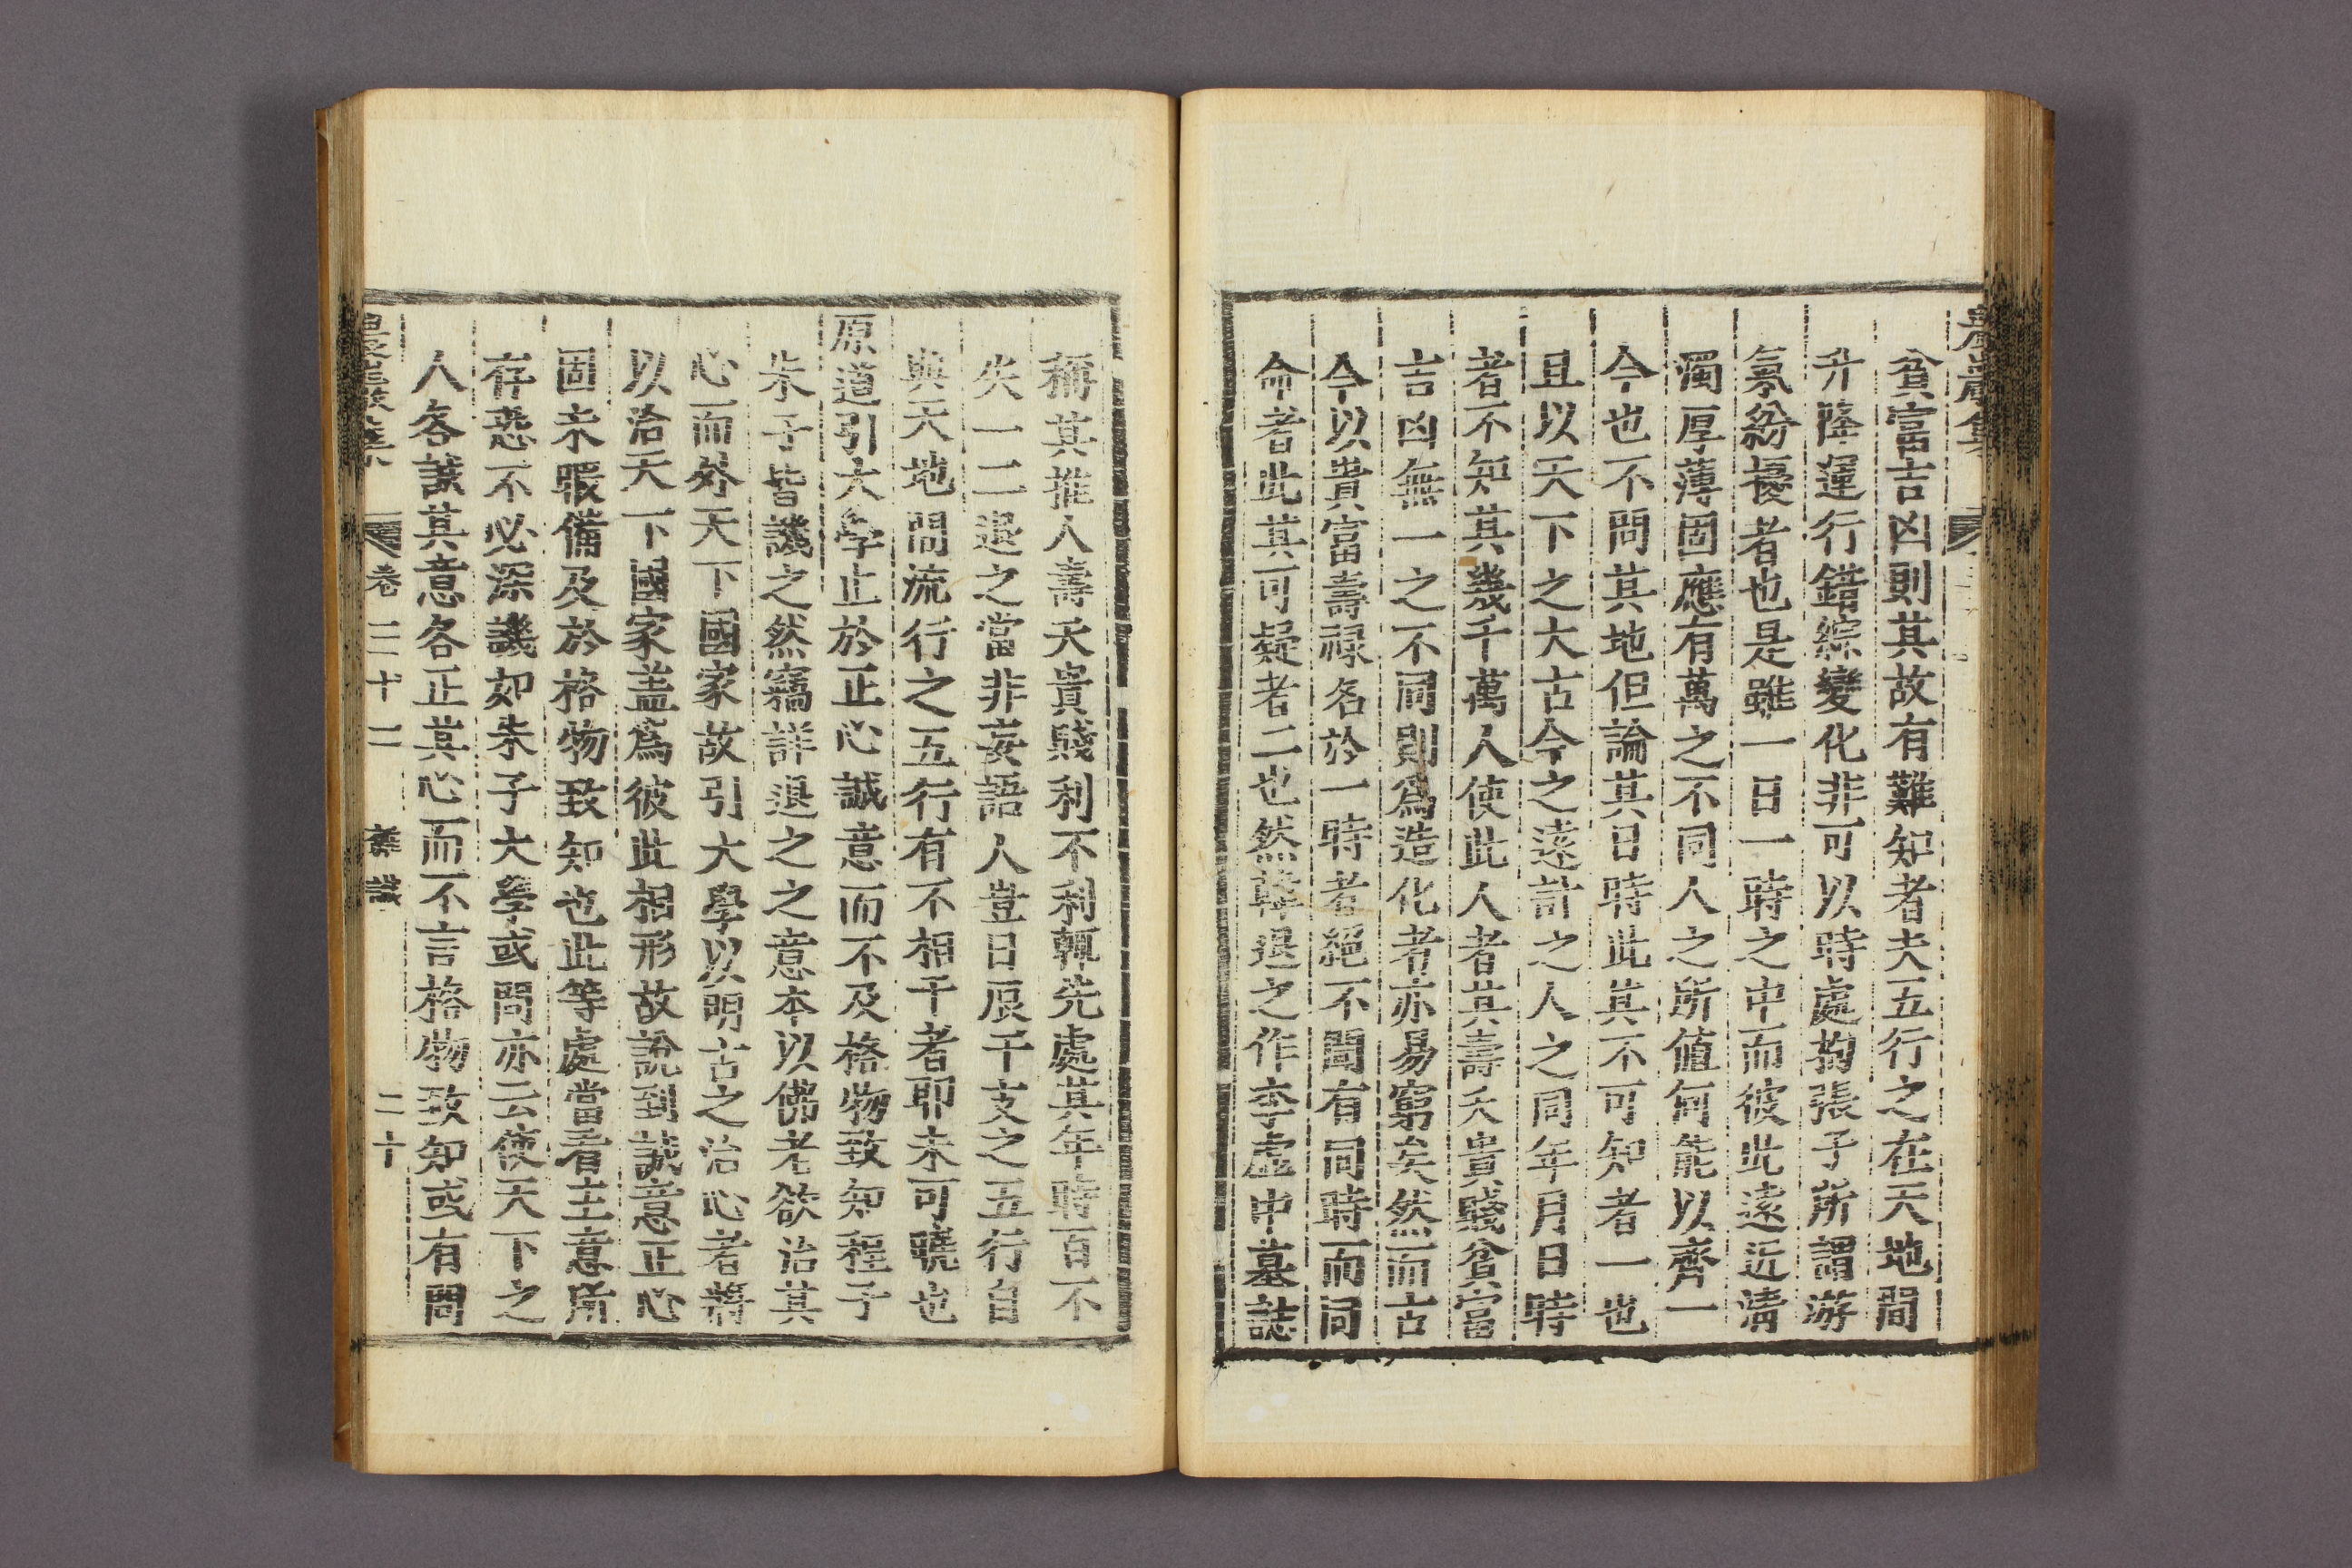 貧富吉凶則其故有難知者夫五行之在天地間
升降運行錯綜變化非可以時處拘張子所謂游
氣紛擾者也是雖一日一時之中而彼此遠近淸
濁厚薄固應有萬之不同人之所値何能以齊一
今也不問其地但論其日時此其不可知者一也
且以天下之大古今之遠計之人之同年月日時
者不知其幾千萬人使此人者其壽夭貴賤貧富
吉凶無一之不同則爲造化者亦易窮矣然而古
今以貴富壽祿名於一時者絕不聞有同時而同
命者此其可疑者二也然韓退之作李虛中墓誌
稱其推人壽夭貴賤利不利輒先處其年時百不
失一二退之當非妄語人豈日辰干支之五行自
與天地間流行之五行有不相干者耶未可曉也
原道引大學止於正心誠意而不及格物致知程子
朱子皆譏之然竊詳退之之意本以佛老欲治其
心而外天下國家故引大學以明古之治心者將
以治天下國家盖爲彼此相形故說到誠意正心
固未暇備及於格物致知也此等處當看主意所
存恐不必深譏如朱子大學或問亦云使天下之
人各誠其意各正其心而不言格物致知或有問
卷三十二 雜識 二十